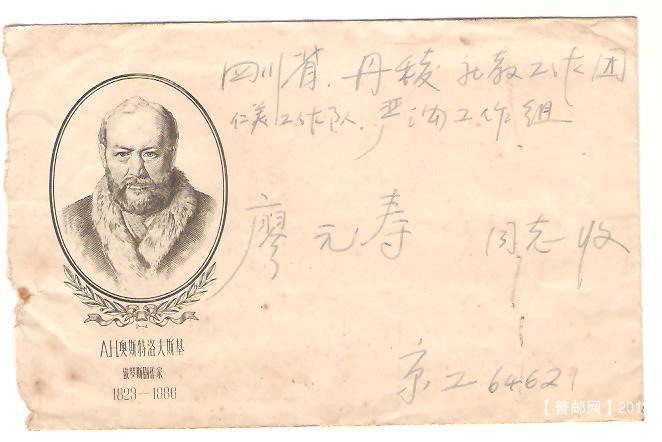 四川省. 丹棱 社教工作团
仁美工作队. 严沟工作组
廖元寿 同志收
京工 64621
А.Н.奥斯特洛夫斯基
俄罗斯剧作家
1823—1886
【普邮网】201